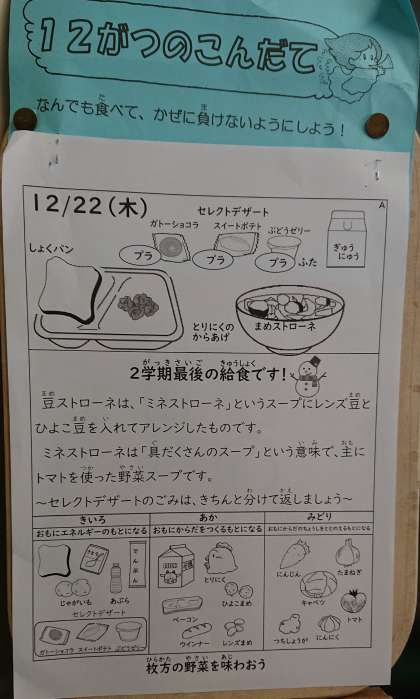 12がつのこんだて
なんでも食べて、かぜに負けないようにしよう！
12/22（木）
A
セレクトデザート
ガトーショコラ
スイートポテト
ぶどうゼリー
プラ
プラ
プラ
ふた
ぎゅうにゅう
しょくパン
とりにくの
からあげ
まめストローネ
2学期最後の給食です！
豆ストローネは、「ミネストローネ」というスープにレンズ豆と
ひよこ豆を入れてアレンジしたものです。
ミネストローネは「具だくさんのスープ」という意味で、主に
トマトを使った野菜スープです。
～セレクトデザートのごみは、きちんと分けて返しましょう～
きいろ
おもにエネルギーのもとになる
でんぷん
じゃがいも
あぶら
セレクトデザート
ガトーショコラ
スイートポテト
ぶどうゼリー
あか
おもにからだをつくるもとになる
とりにく
ひよこまめ
ベーコン
ウインナー
レンズまめ
みどり
おもにからだのちょうしをととのえるもとになる
にんじん
たまねぎ
キャベツ
トマト
つちしょうが
にんにく
枚方の野菜を味わおう